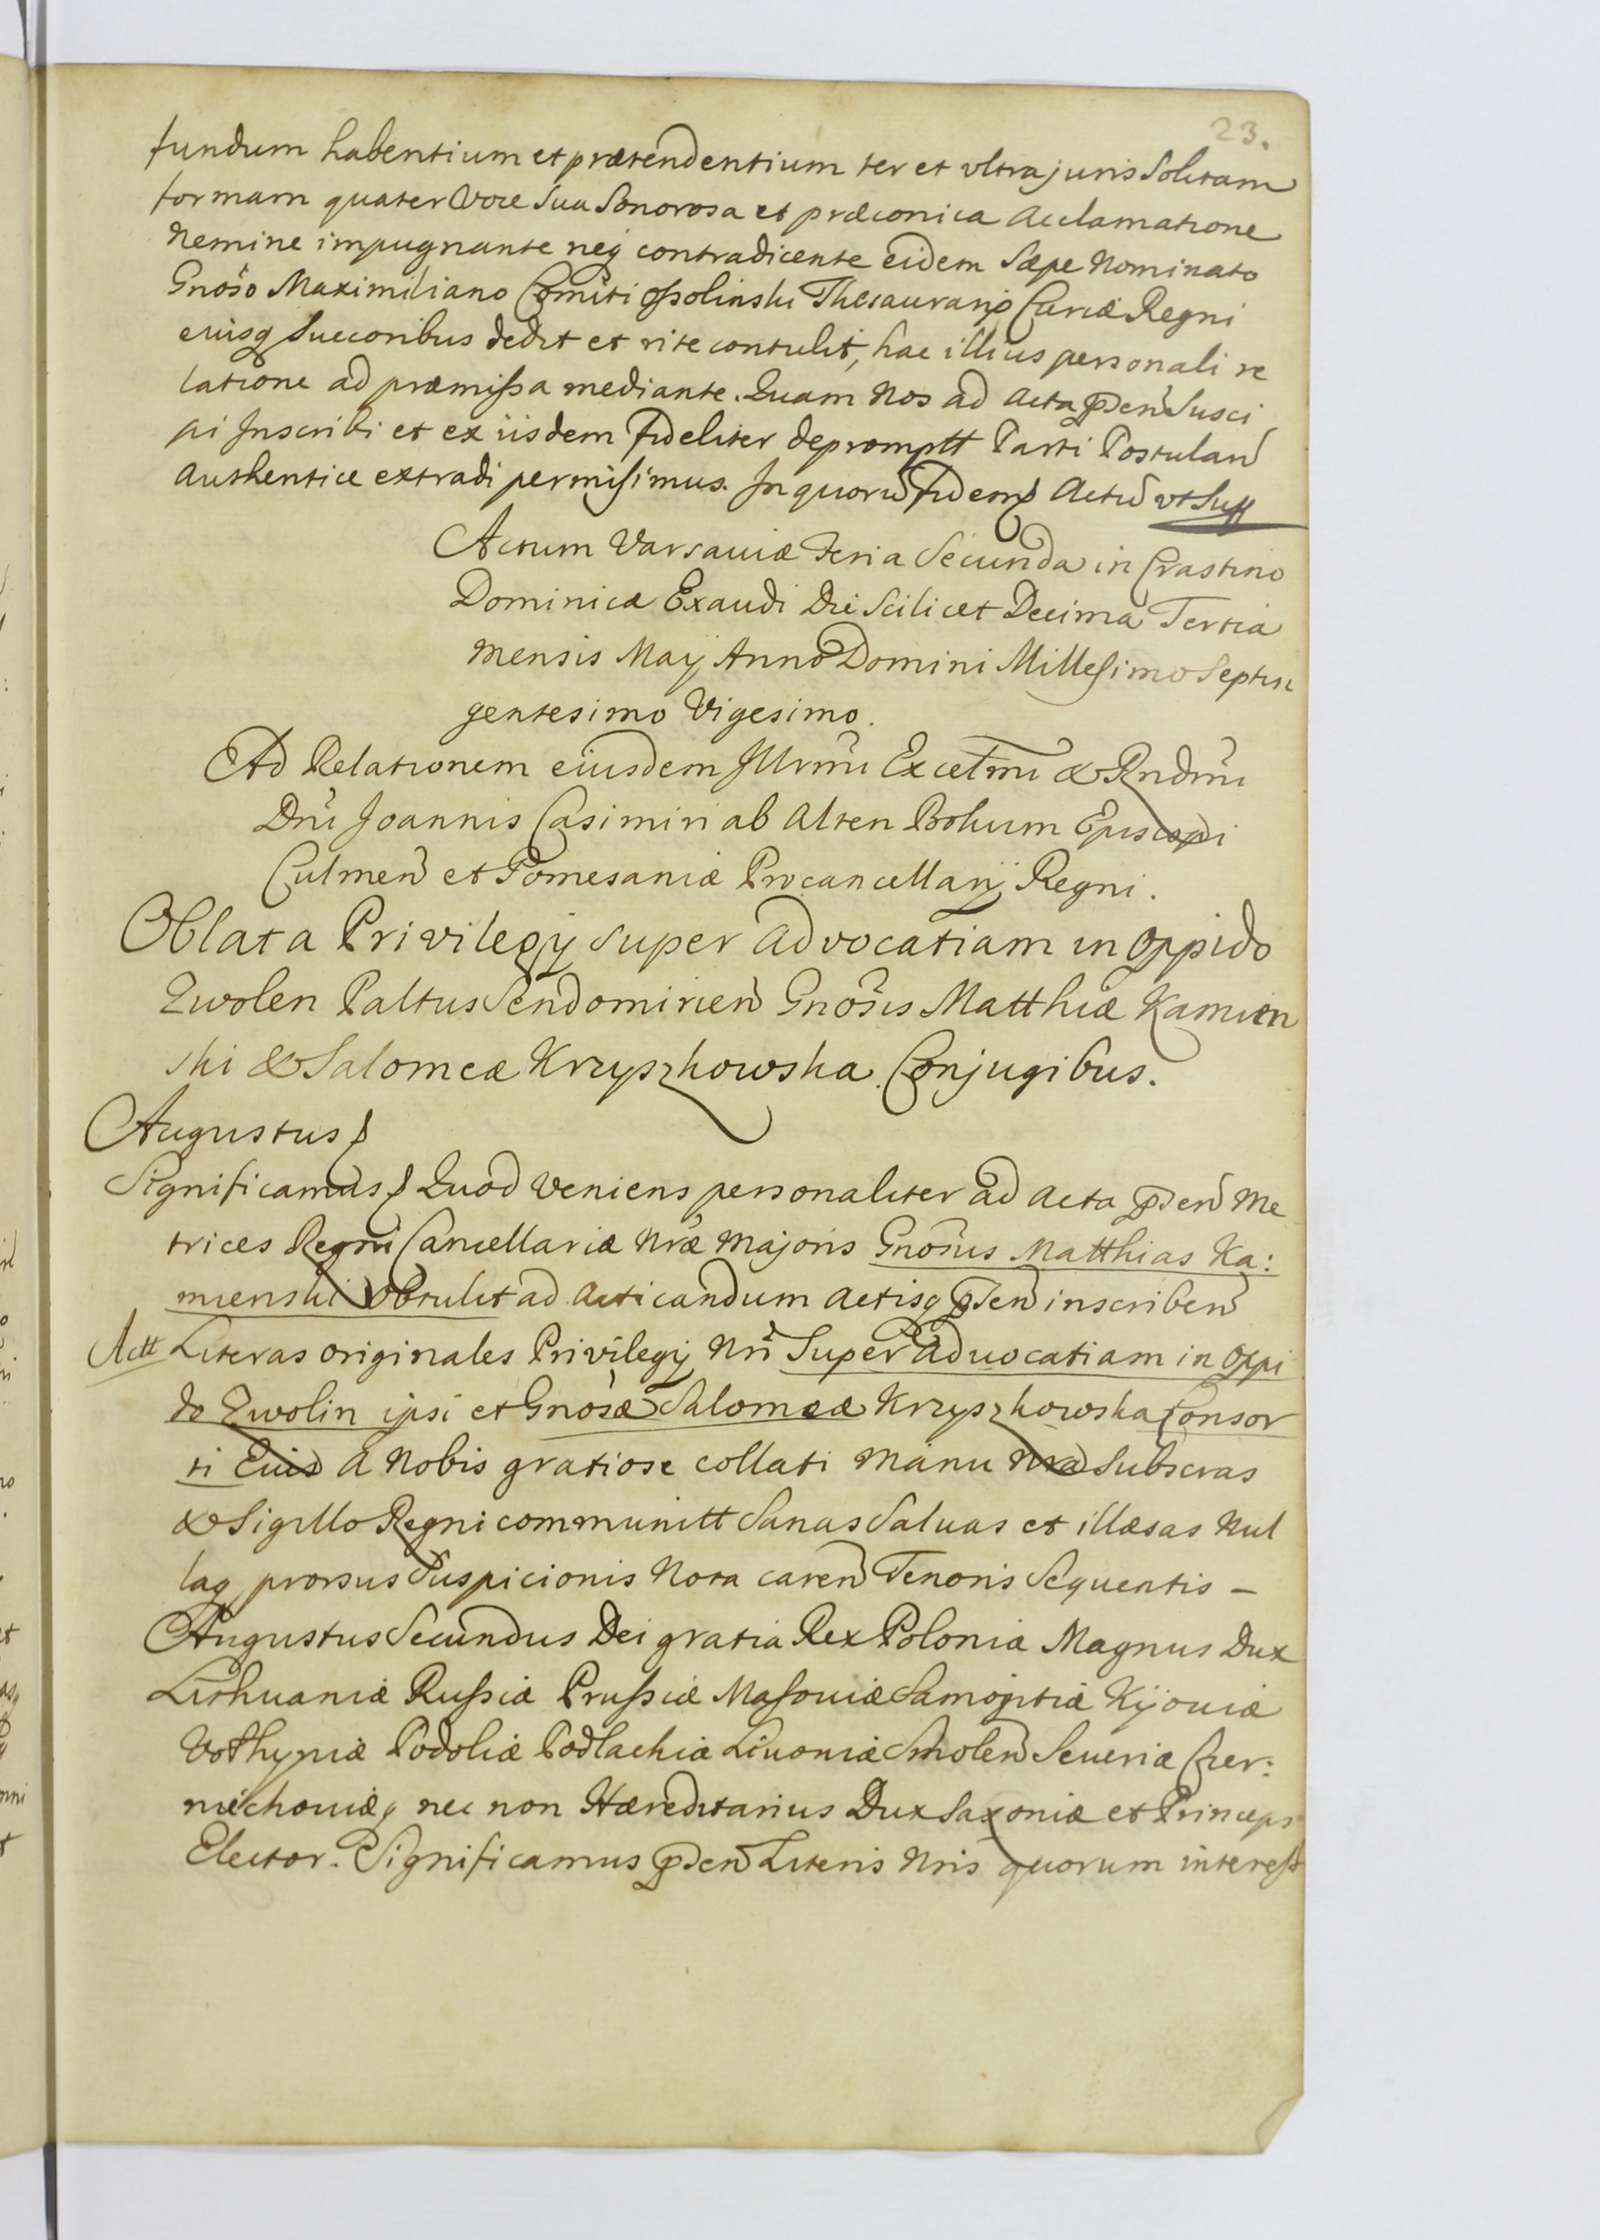 23.
fundum habentium et prætendentium ter et vltra juris Solitam
formam quater Voce Sua Sonorosa et præconica Acclamatione
Nemine impugnante neq contradicente eidem Sæpe Nominato
Gnoso Maximiliano Comiti Ossolinski Thesaurario Curiæ Regni
eiusq Succoribus dedit et rite contulit, hac illius personali re
latione ad præmissa mediante. Quam Nos ad Acta pñ Susci
pi Inscribi et ex iisdem fideliter depromptt Parti Postulañ
Authentice extradi permisimus. In quorũ fidem Actũ vt Supp
Actum Varsaviæ Feria Secunda in Crastino
Dominicæ Exaudi Die Scilicet Decima Tertia
Mensis Maij Anno Domini Millesimo Septin
gentesimo Vigesimo.
Ad Relationem eiusdem Illrmi Excelmi & Rndmi
Dni Joannis Casimiri ab Alten Bokum Episcopi
Culmeñ et Pomesaniæ Procancellarij Regni.
Oblata Privilegij super advocatiam in Oppido
Zwolen Paltus Sendomirieñ Gnosis Matthiæ Kamien
ski & Salomeæ Krzyszkowska Conjugibus.
Augustus
Significamus Quod veniens personaliter ad Acta pñ Me
trices Regni Cancellariæ Nræ Majoris Gnosus Matthias Ka:
mienski obtulit ad Acticandum Actisq pñ inscribeñ
Actt Literas originales Privilegij Nri Super Aduocatiam in Oppi
do Zwolin ipsi et Gnosæ Salomeæ Krzyszkowska Consor
ti Eius A Nobis gratiose collati Manu Nra Subscras
& Sigillo Regni communitt Sanas Saluas et illæsas Nul
laq prorsus Suspicionis Nota careñ Tenoris Sequentis –
Augustus Secundus Dei gratia Rex Poloniæ Magnus Dux
Lithuaniæ Russiæ Prussiæ Masouiæ Samogitiæ Kijouiæ
Volhyniæ Podoliæ Podlachiæ Liuoniæ Smoleñ Seueriæ Czer:
niechouiæq nec non Hæreditarius Dux Saxoniæ et Princeps
Elector. Significamus pñ Literis Nris quorum interest